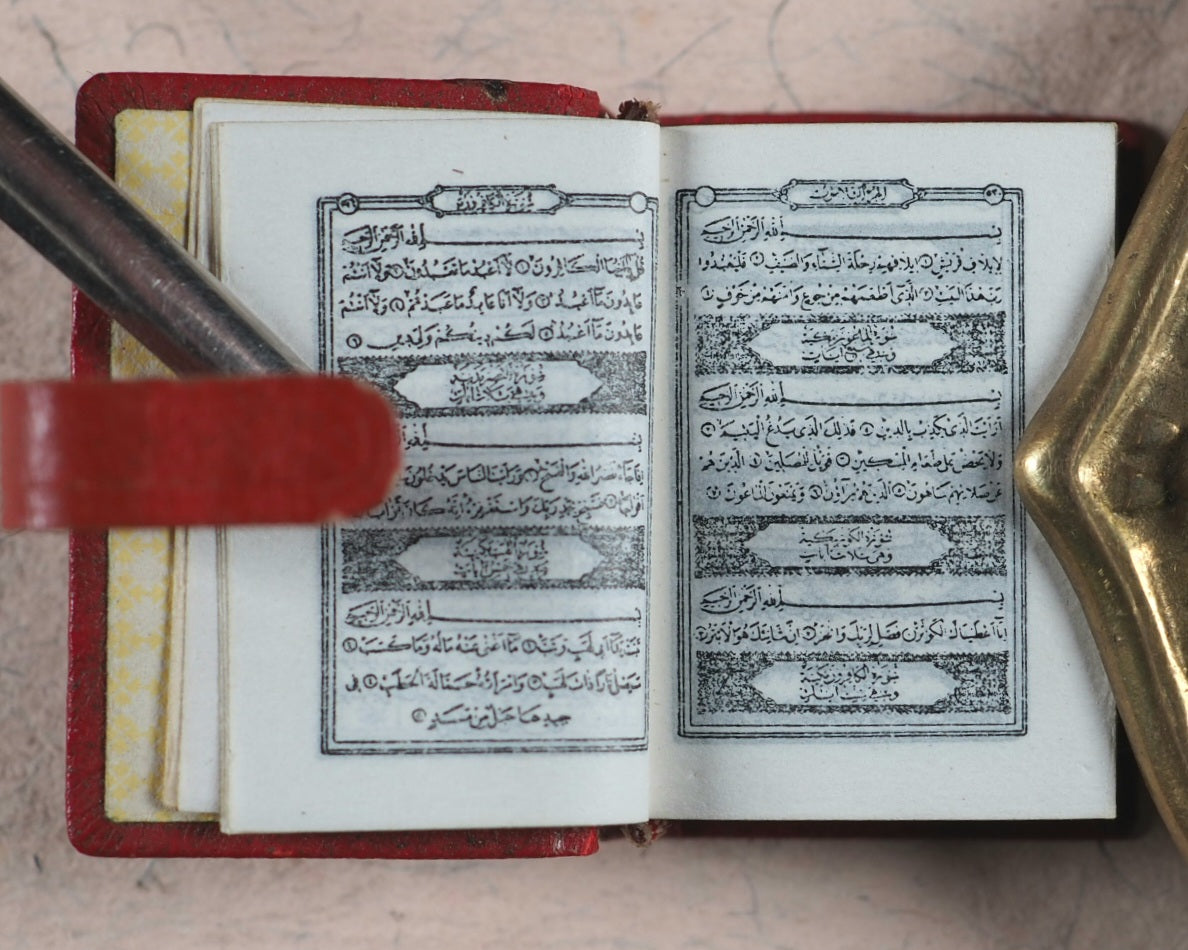 بسم الله الرحمن الرحيم
لإيلاف قريش ١ إيلافهم رحلة الشتاء والصيف ٢ فليعبدوا
رب هذا البيت ٣ الذي أطعمهم من جوع وآمنهم من خوف
سورة الماعون مكية
بسم الله الرحمن الرحيم
أرأيت الذي يكذب بالدين ١ فذلك الذي يدع اليتيم ٢
ولا يحض على طعام المسكين ٣ فويل للمصلين ٤ الذين هم
عن صلاتهم ساهون ٥ الذين هم يراؤن ٦ ويمنعون الماعون ٧
سورة الكوثر مكية
وهي ثلاث آيات
بسم الله الرحمن الرحيم
إنا أعطيناك الكوثر ١ فصل لربك وانحر ٢ إن شانئك هو الأبتر ٣
سورة الكافرون مكية
وهي ست آيات
سورة الكافرون
بسم الله الرحمن الرحيم
قل يا أيها الكافرون ١ لا أعبد ما تعبدون ٢ ولا أنتم
عابدون ما أعبد ٣ ولا أنا عابد ما عبدتم ٤ ولا أنتم
عابدون ما أعبد ٥ لكم دينكم ولي دين ٦
سورة النصر مدنية
وهي ثلاث آيات
بسم الله
إذا جاء نصر الله والفتح ١ ورأيت الناس يدخلون
أفواجا ٢ فسبح بحمد ربك واستغفره إنه كان توابا
بسم الله الرحمن الرحيم
تبت يدا أبي لهب وتب ١ ما أغنى عنه ماله وما كسب ٢
سيصلى نارا ذات لهب ٣ وامرأته حمالة الحطب ٤ في
جيدها حبل من مسد ٥